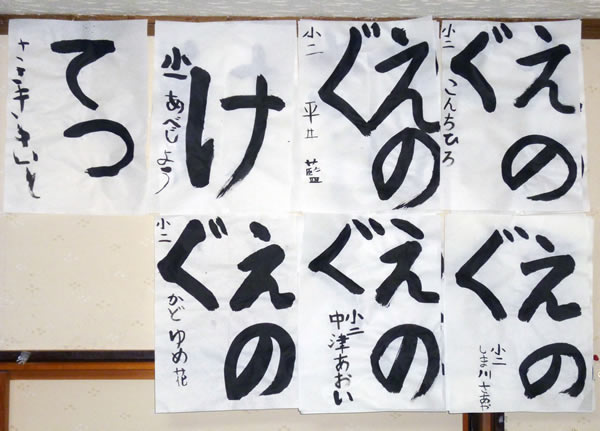 えの
ぐ
小二 こんちひろ
えの
ぐ
小二 平井 藍
け
小一 あべじょう
てつ
えの
ぐ
小二 しま川さあや
えの
ぐ
小二 中津あおい
えの
ぐ
小二 かどゆめ花